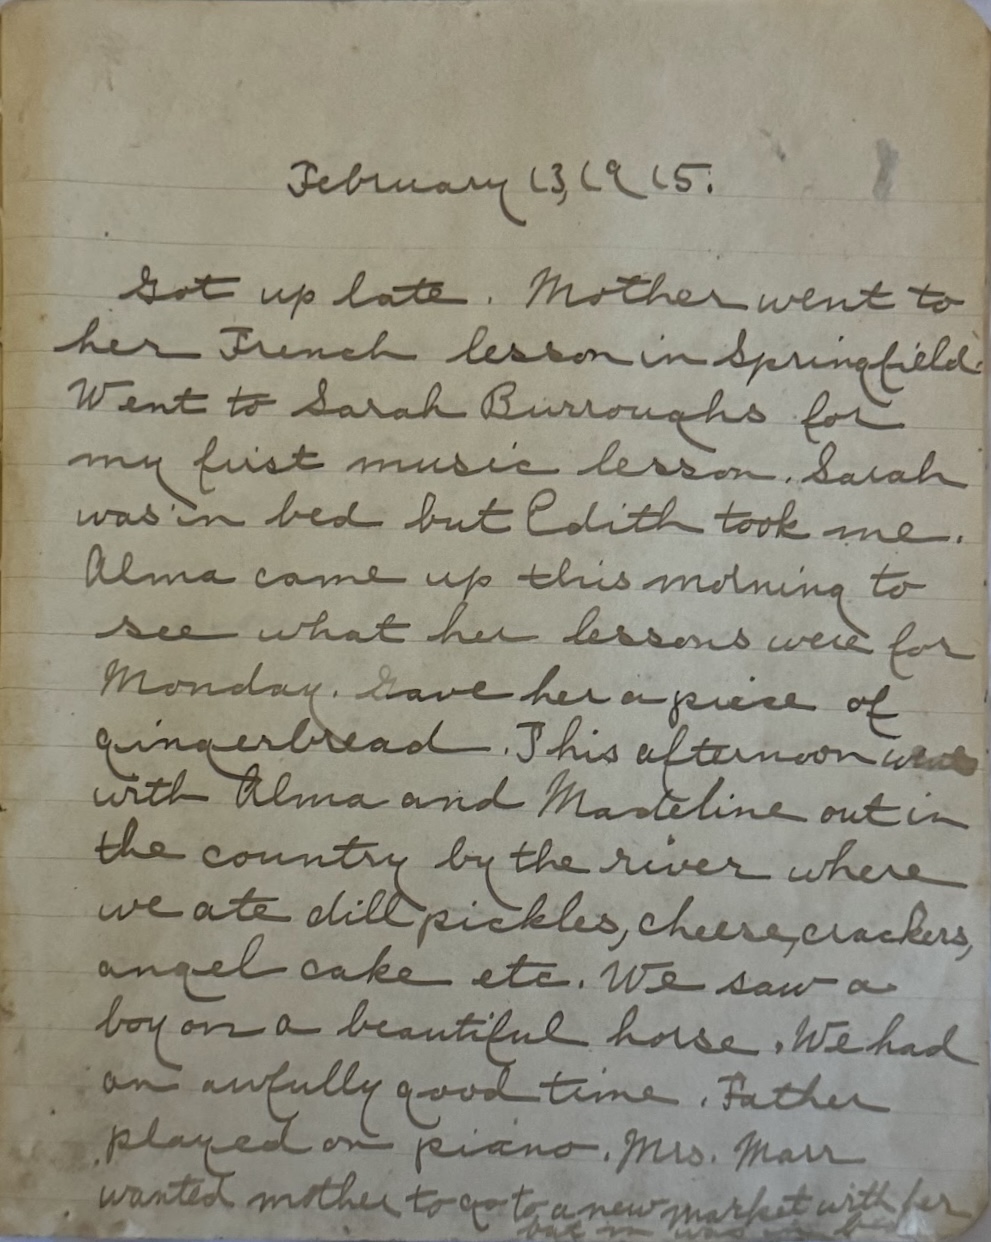 February 13, 1915.
Got up late. Mother went to
her French lesson in Springfield.
Went to Sarah Burroughs for
my first music lesson. Sarah
was in bed but Edith took me.
Alma came up this morning to
see what her lessons were for
Monday. Gave her a piece of
gingerbread. This afternoon went
with Alma and Madeline out in
the country by the river where
we ate dill pickles, cheese, crackers,
angel cake etc. We saw a
boy on a beautiful horse. We had
an awfully good time. Father
played on piano. Mrs. Marr
wanted mother to go to a new market with her
but m was in